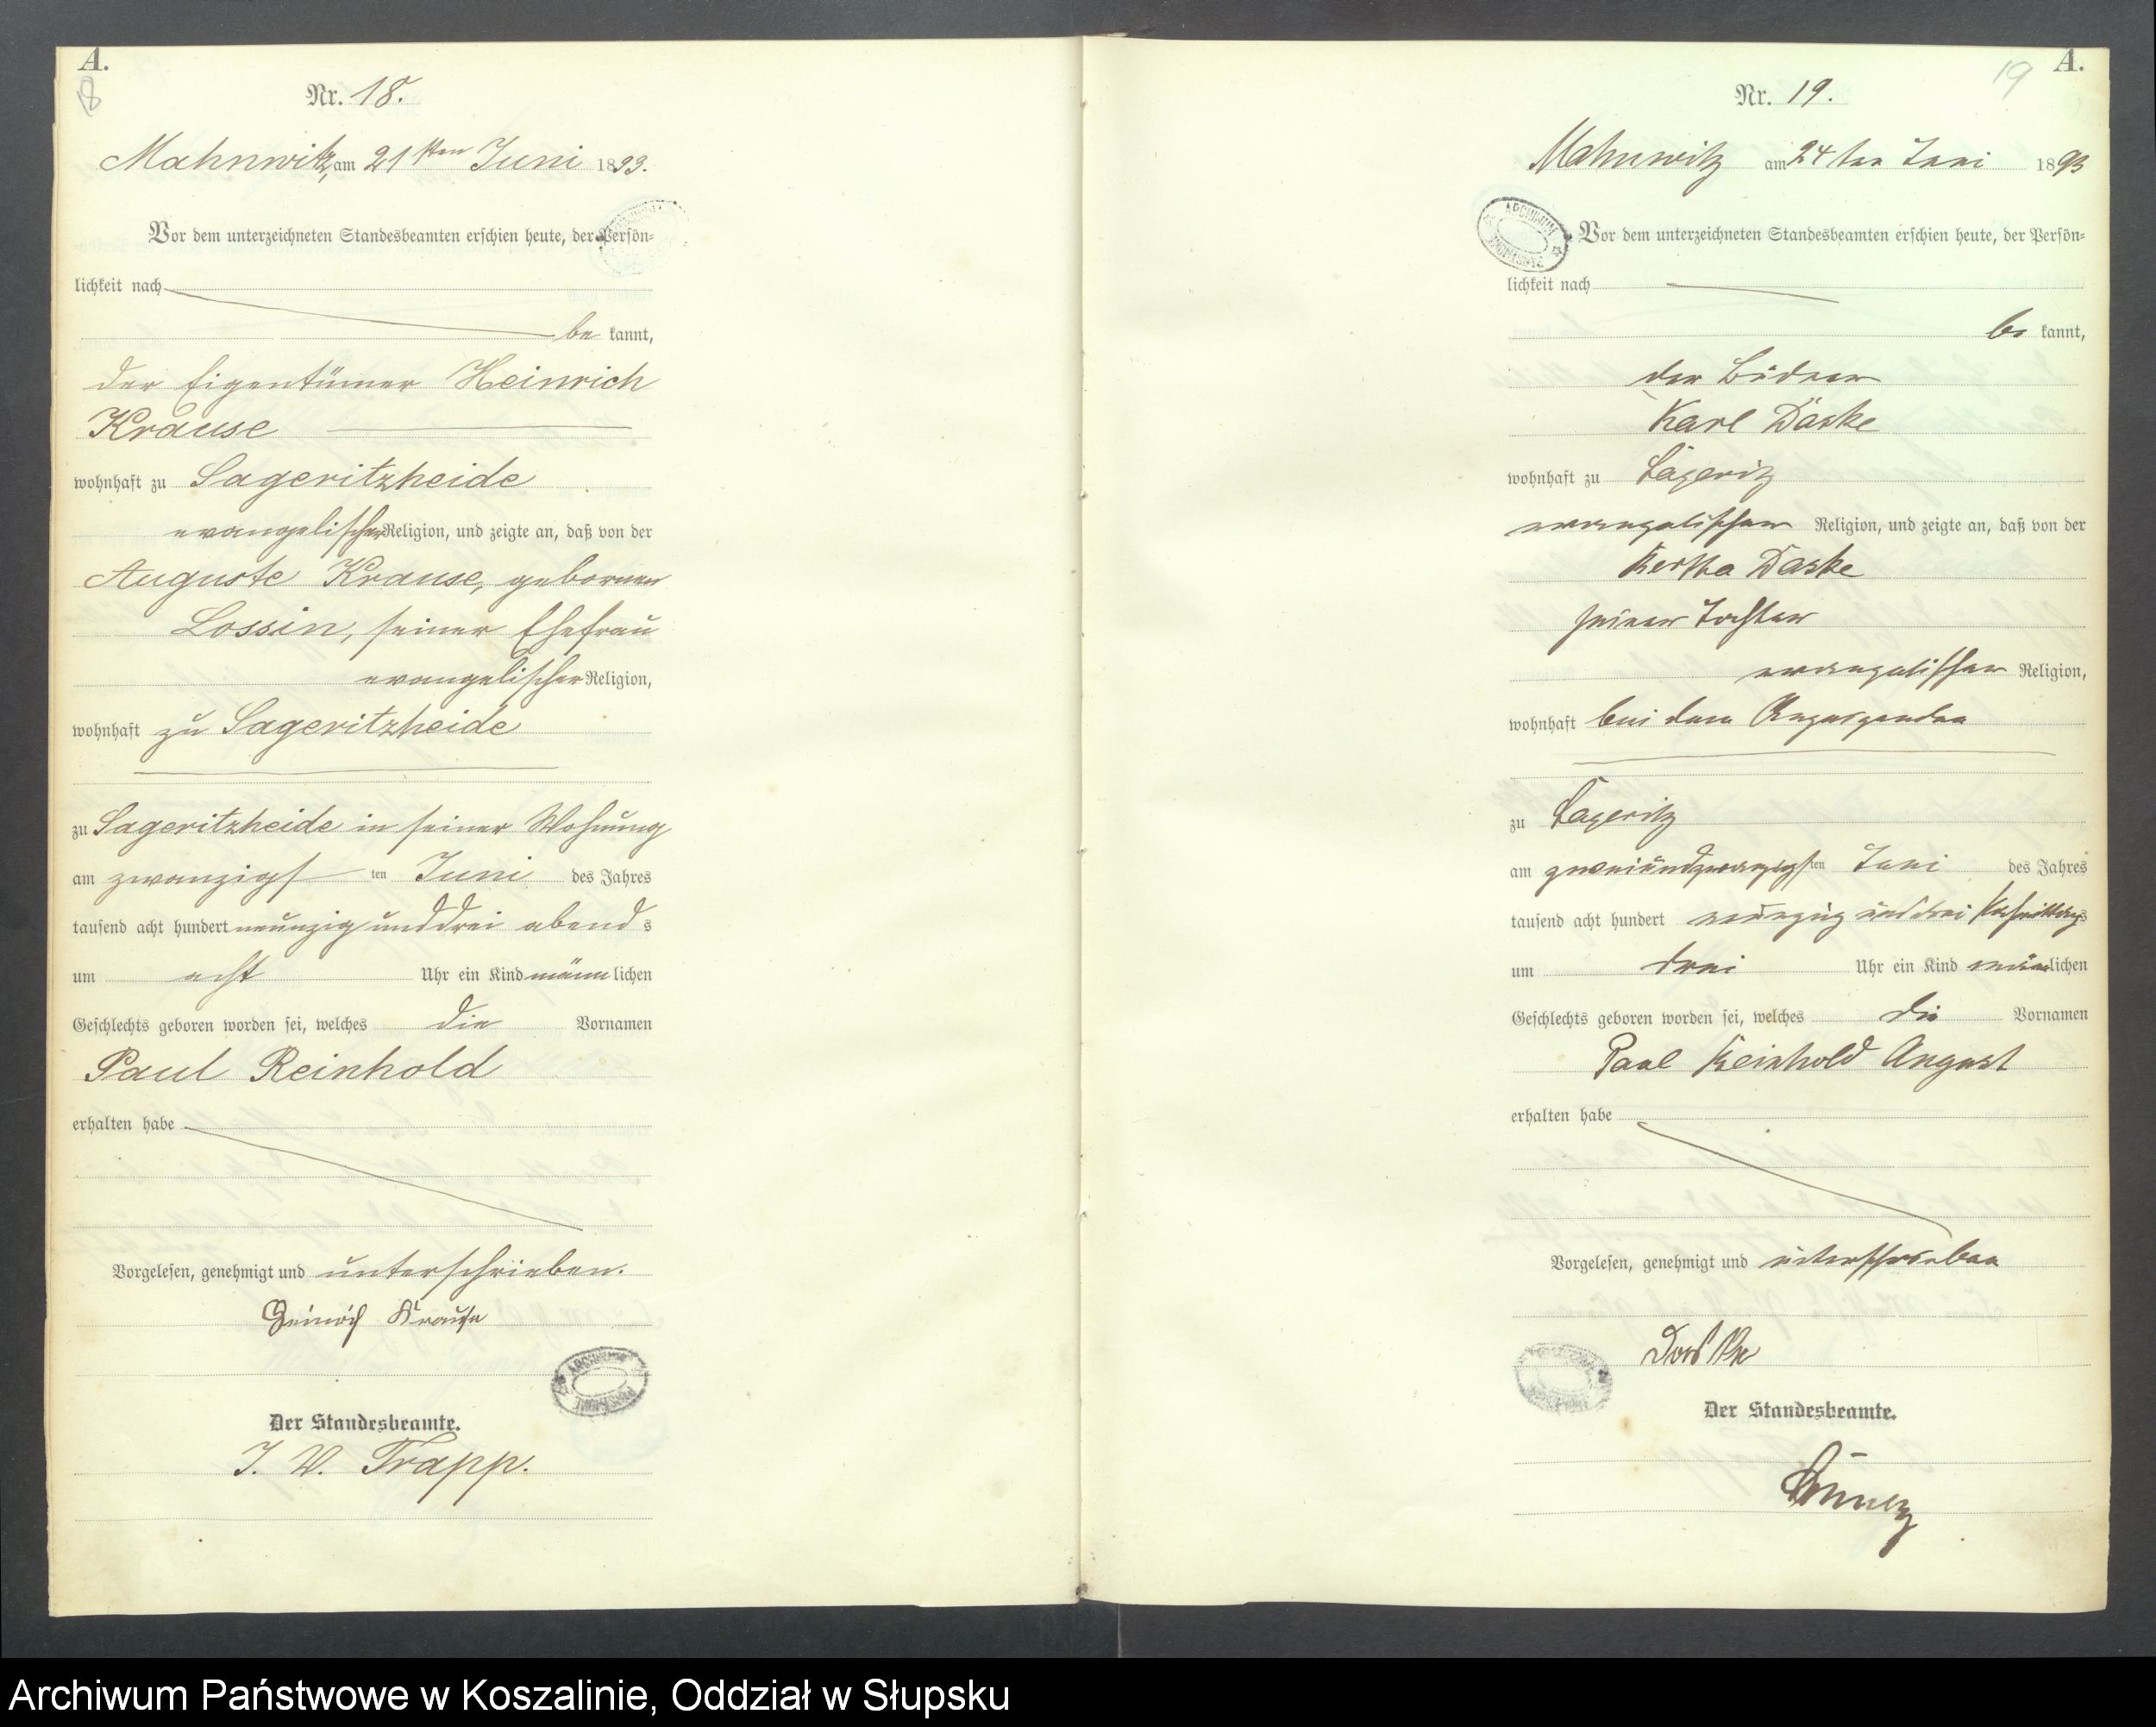 A.
18
Nr. 18.
Mahnwitz, am 21sten Juni 1893.
Vor dem unterzeichneten Standesbeamten erschien heute, der Persön-
lichkeit nach
be kannt,
der Eigentümer Heinrich
Krause
wohnhaft zu Sageritzheide
evangelischer Religion, und zeigte an, daß von der
Auguste Krause, geborenen
Lossin, seiner Ehefrau
evangelischer Religion,
wohnhaft zu Sageritzheide
zu Sageritzheide in seiner Wohnung
am zwanzigsten Juni des Jahres
tausend acht hundert neunzig und drei abends
um acht Uhr ein Kind männlichen
Geschlechts geboren worden sei, welches die Vornamen
Paul Reinhold
erhalten habe
Vorgelesen, genehmigt und unterschrieben.
Heinrich Krause
ARCHIWUM
Der Standesbeamte.
I. V. Trapp.
A.
19
Nr. 19.
Mahnwitz am 24ten Juni 1893
ARCHIWUM
Vor dem unterzeichneten Standesbeamten erschien heute, der Persön-
lichkeit nach
be kannt,
der Büdner
Karl Daske
wohnhaft zu Sageritz
evangelischer Religion, und zeigte an, daß von der
Bertha Daske
seiner Tochter
evangelischer Religion,
wohnhaft bei dem Anzeigenden
zu Sageritz
am zweiundzwanzigsten Juni des Jahres
tausend acht hundert neunzig und drei Nachmittags
um drei Uhr ein Kind männlichen
Geschlechts geboren worden sei, welches die Vornamen
Paul Reinhold August
erhalten habe
Vorgelesen, genehmigt und unterschrieben
Daske
Der Standesbeamte.
Archiwum Państwowe w Koszalinie, Oddział w Słupsku